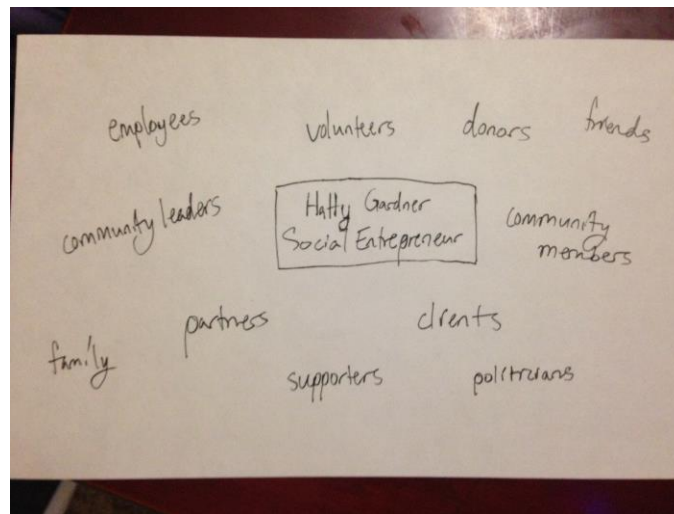 employees
volunteers
donors
friends
community leaders
Hatty Gardner
Social Entrepreneur
community
members
partners
clients
family
supporters
politicians